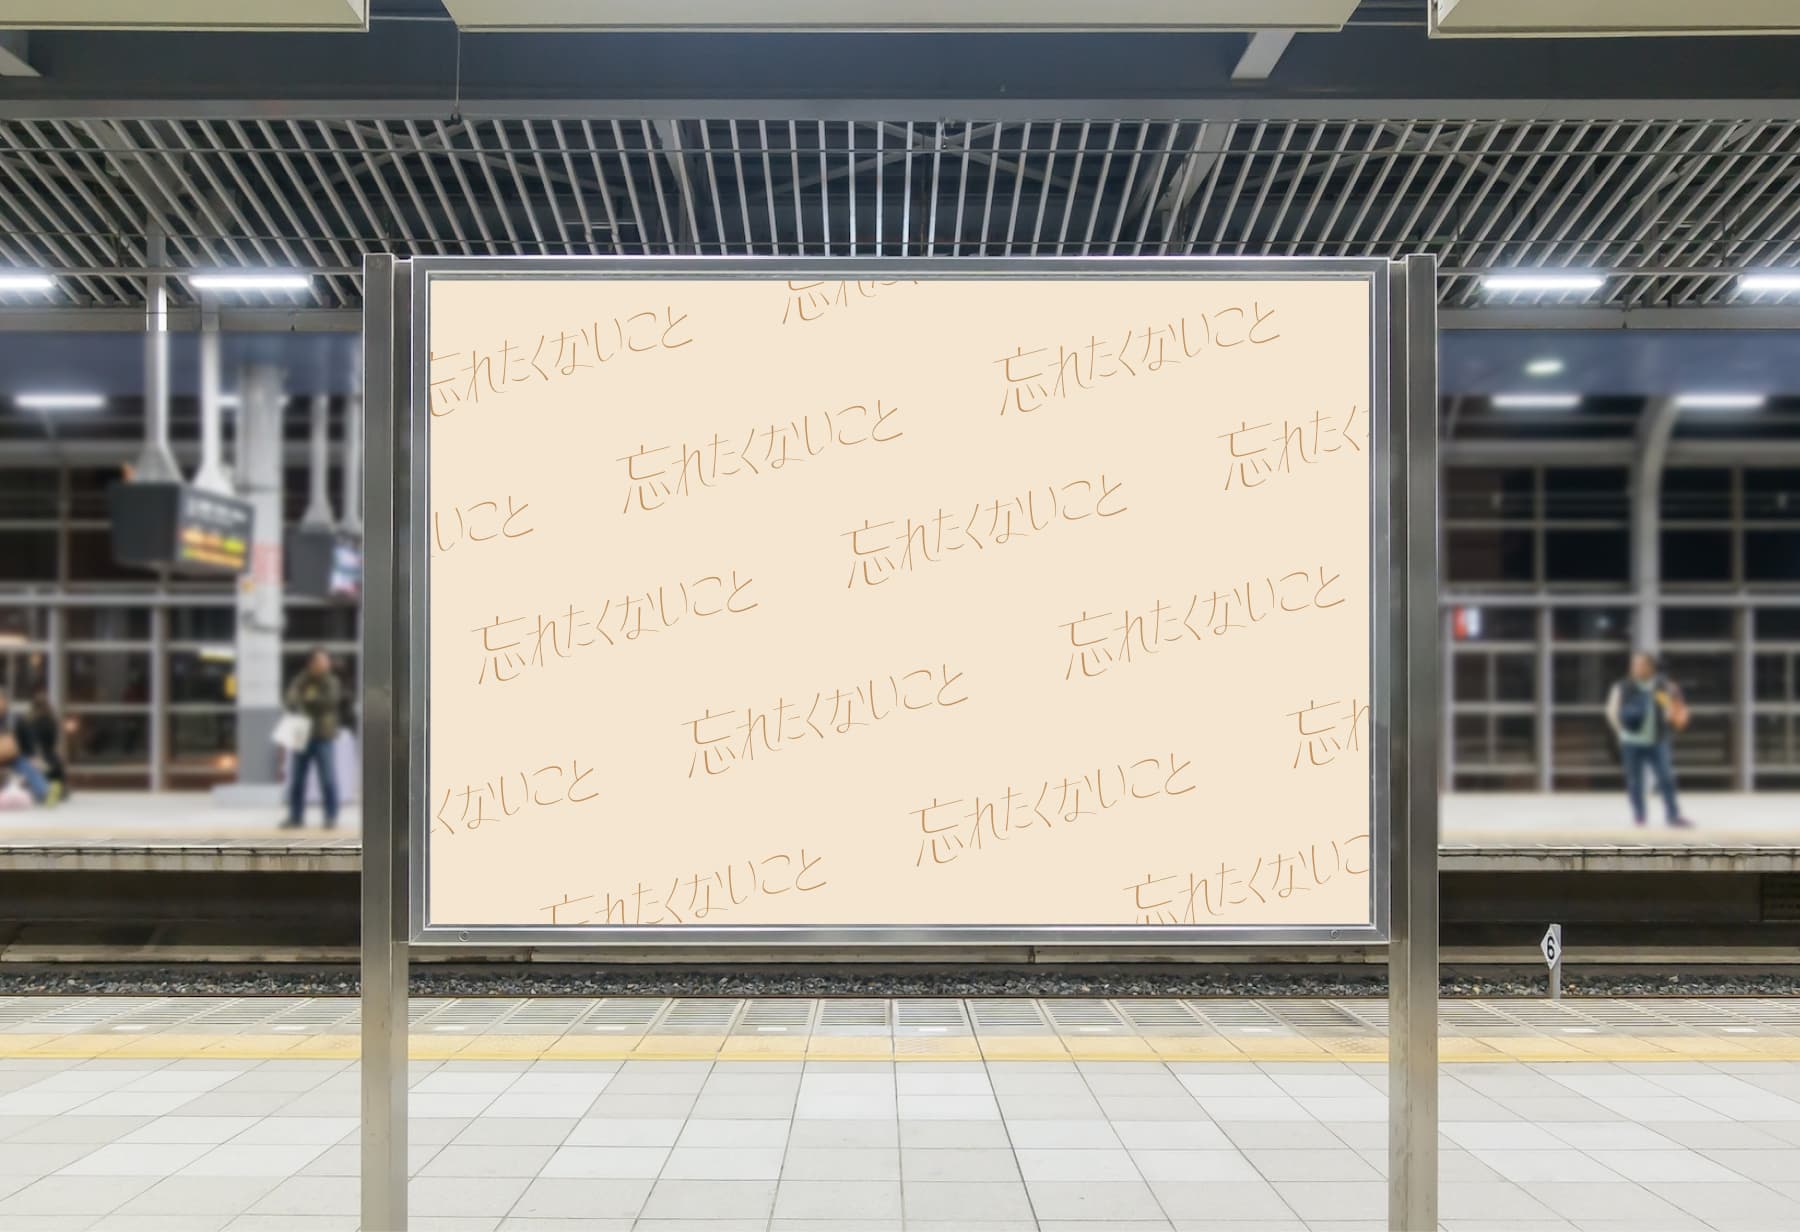 忘れ
忘れたくないこと
忘れたくないこと
忘れたくないこと
忘れたく
いこと
忘れたくないこと
忘れたくないこと
忘れたくないこと
忘れたくないこと
忘れ
くないこと
忘れたくないこと
忘れたくないこと
忘れたくないこ
6